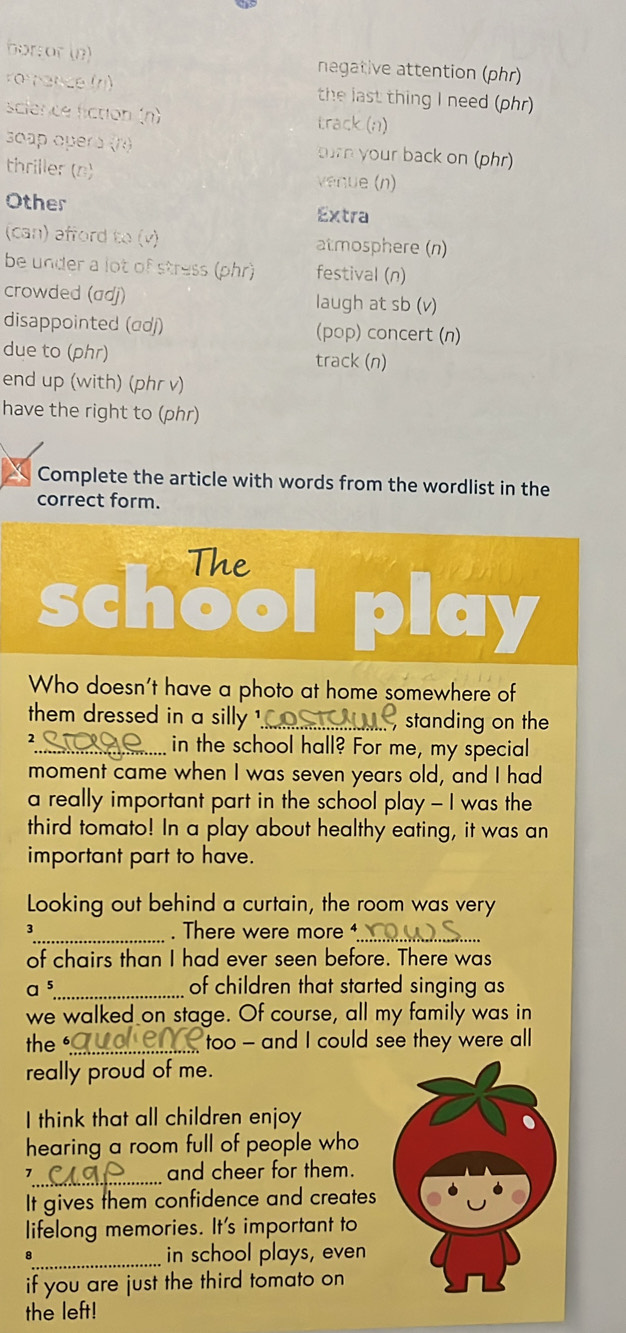 horror (n)
romance (n)
science fiction (n)
soap opera (n)
thriller (n)
Other
(can) afford to (v)
be under a lot of stress (phr)
crowded (adj)
disappointed (adj)
due to (phr)
end up (with) (phr v)
have the right to (phr)
negative attention (phr)
the last thing I need (phr)
track (n)
turn your back on (phr)
venue (n)
Extra
atmosphere (n)
festival (n)
laugh at sb (v)
(pop) concert (n)
track (n)
4 Complete the article with words from the wordlist in the
correct form.
The
school play
Who doesn't have a photo at home somewhere of
them dressed in a silly ¹ costume, standing on the
² stage in the school hall? For me, my special
moment came when I was seven years old, and I had
a really important part in the school play – I was the
third tomato! In a play about healthy eating, it was an
important part to have.
Looking out behind a curtain, the room was very
³.................... . There were more ⁴ rows
of chairs than I had ever seen before. There was
a ⁵.................... of children that started singing as
we walked on stage. Of course, all my family was in
the ⁶ audience too – and I could see they were all
really proud of me.
I think that all children enjoy
hearing a room full of people who
⁷ clap and cheer for them.
It gives them confidence and creates
lifelong memories. It's important to
⁸.................... in school plays, even
if you are just the third tomato on
the left!